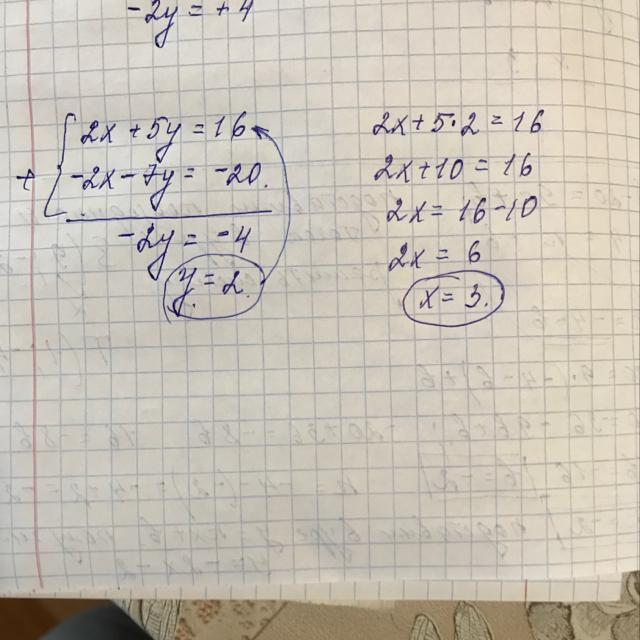 -2y = +4
2x + 5y = 16
+
-2x - 7y = -20.
-2y = -4
y = 2.
2x + 5·2 = 16
2x + 10 = 16
2x = 16 - 10
2x = 6
x = 3.